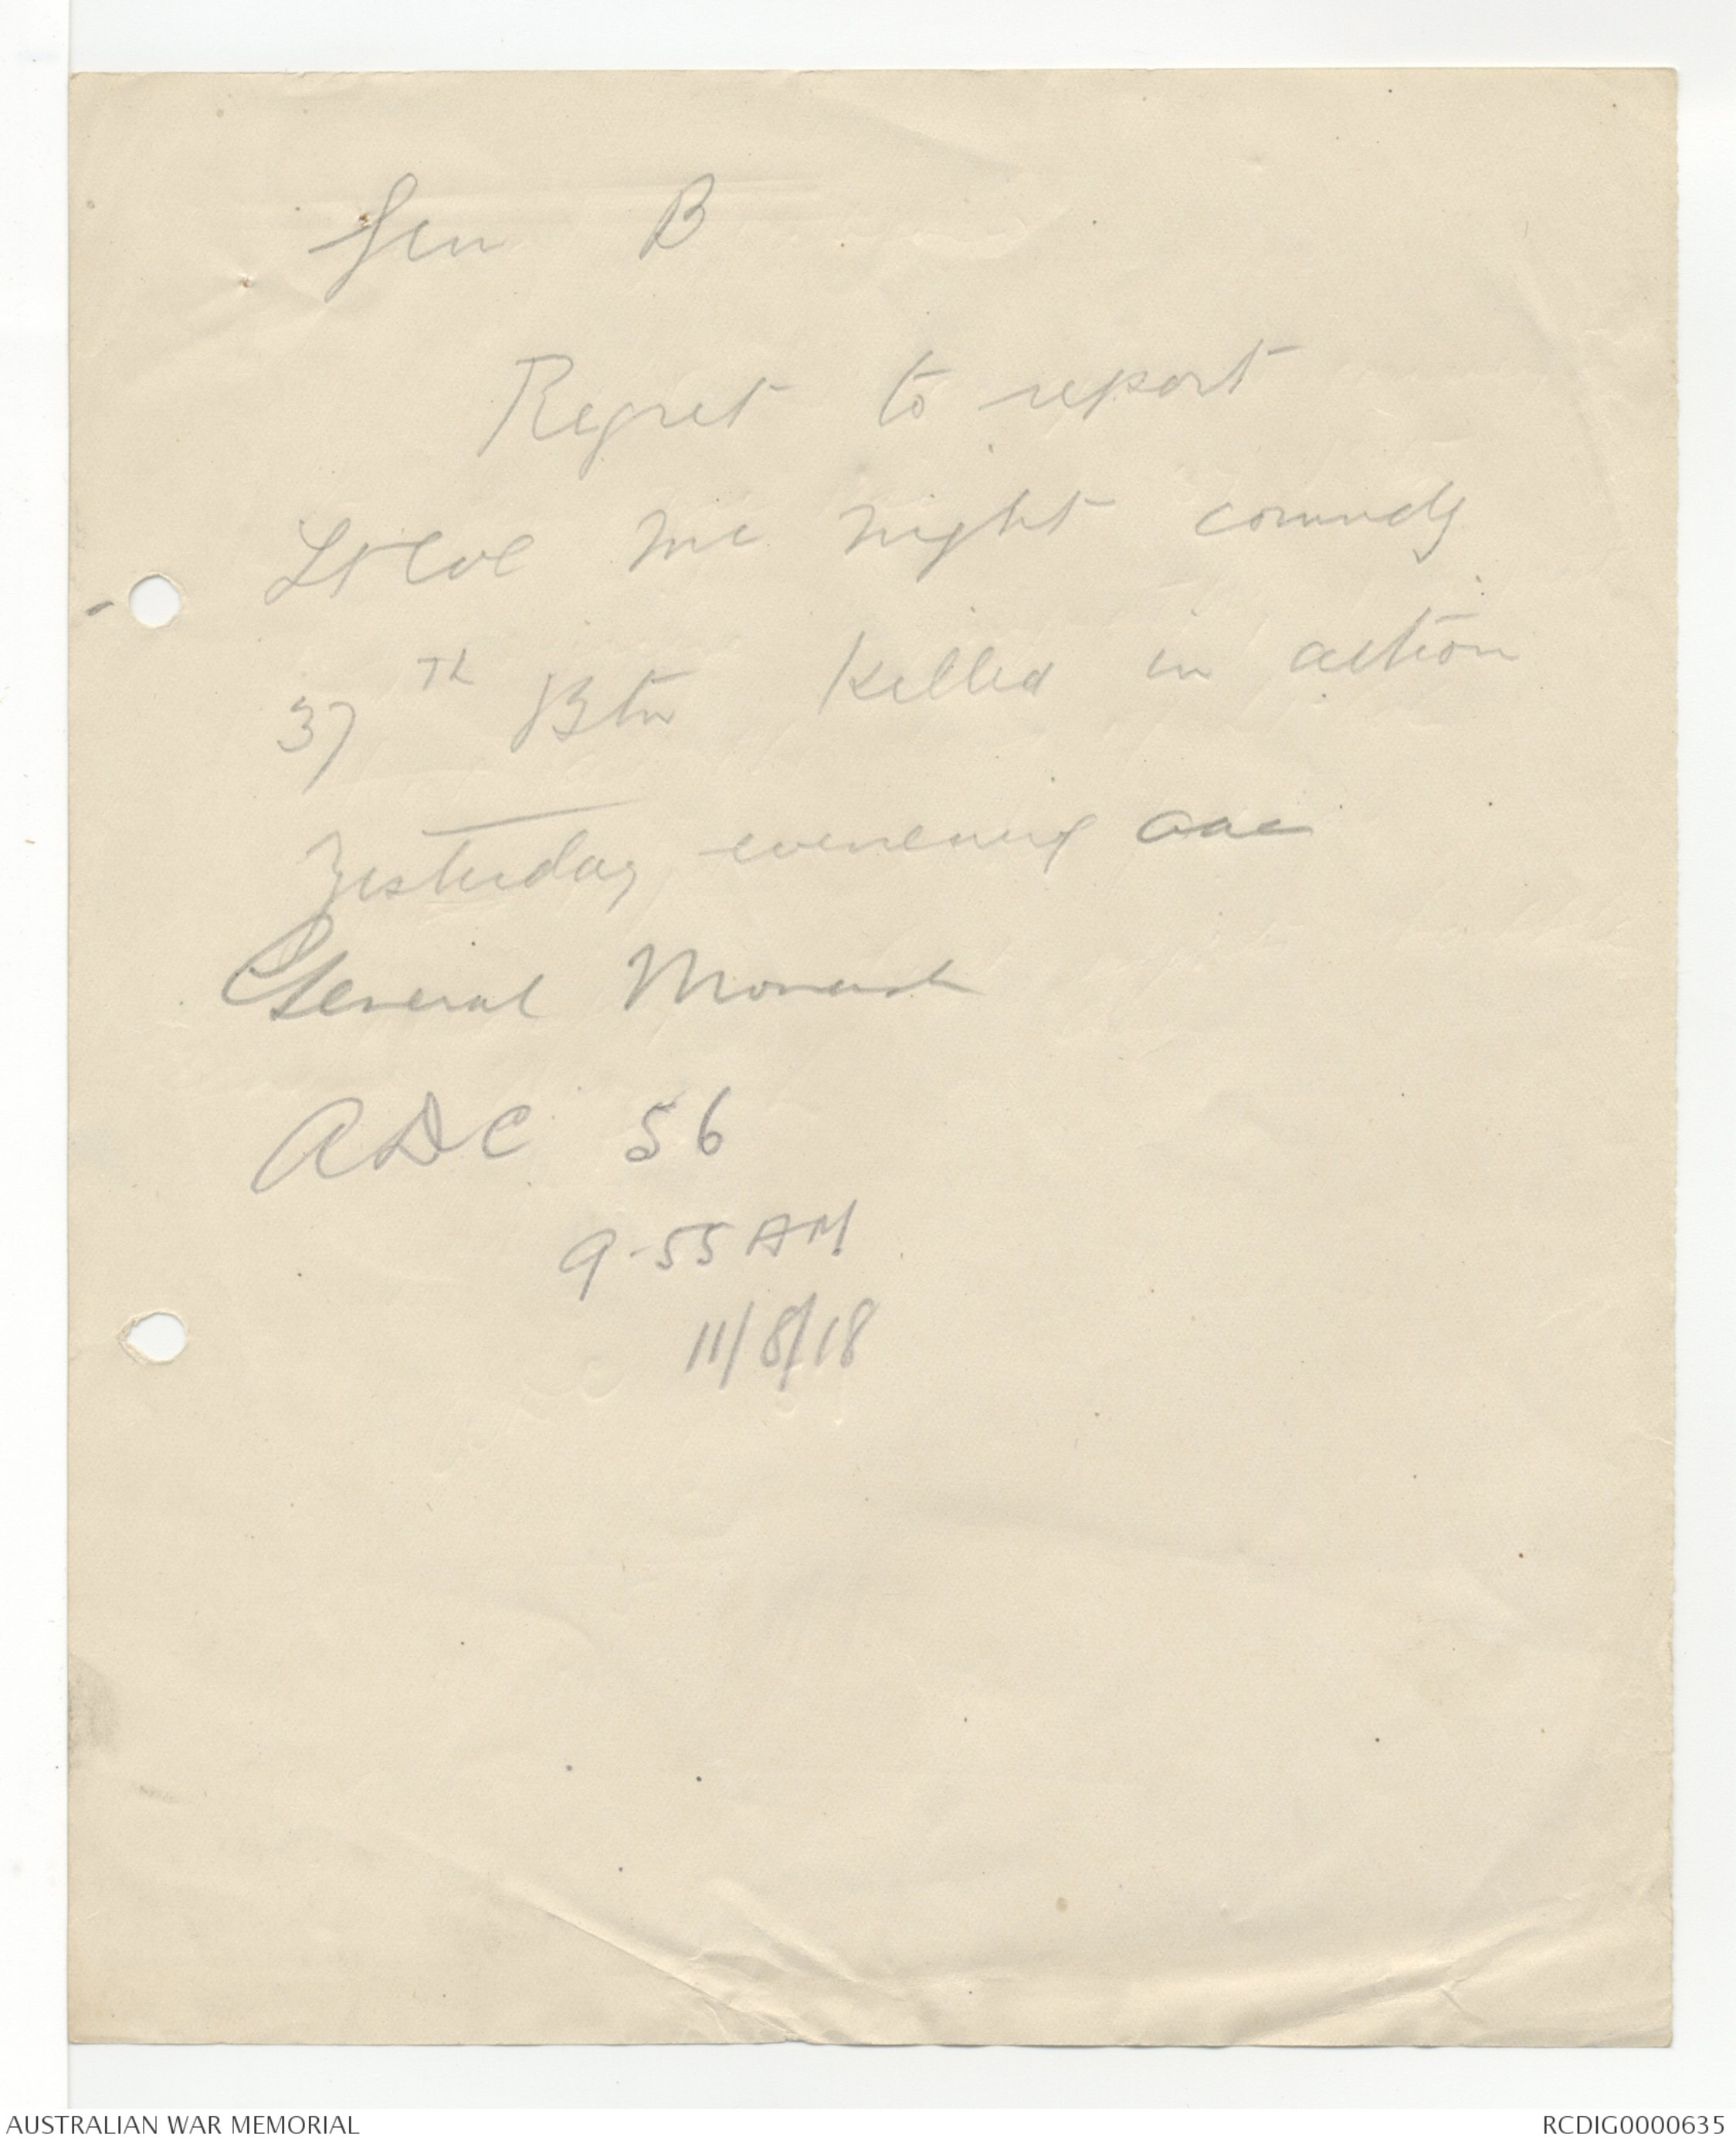 Gen B
Regret to report
Lt Col Mc Night commdg
37 TH Btn Killed in action
Yesterday evening aaa
General Monash
ADC 56
9-55 AM
11/8/18
AUSTRALIAN WAR MEMORIAL
RCDIG0000635